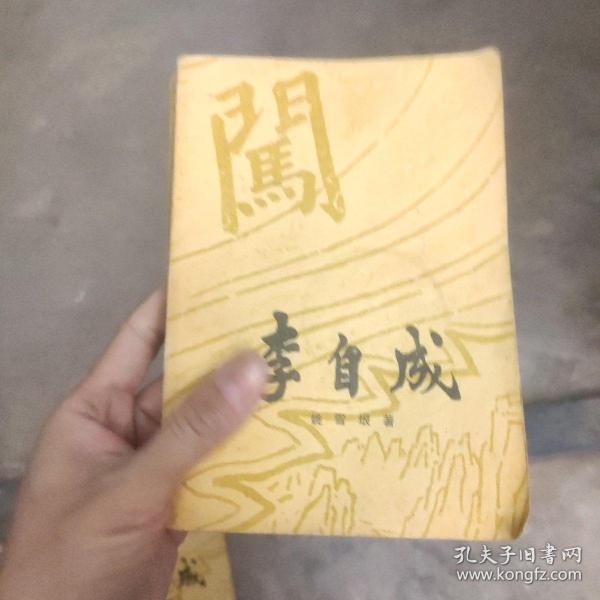 闖
李自成
姚雪垠著
成
孔夫子旧書网
www.kongfz.com